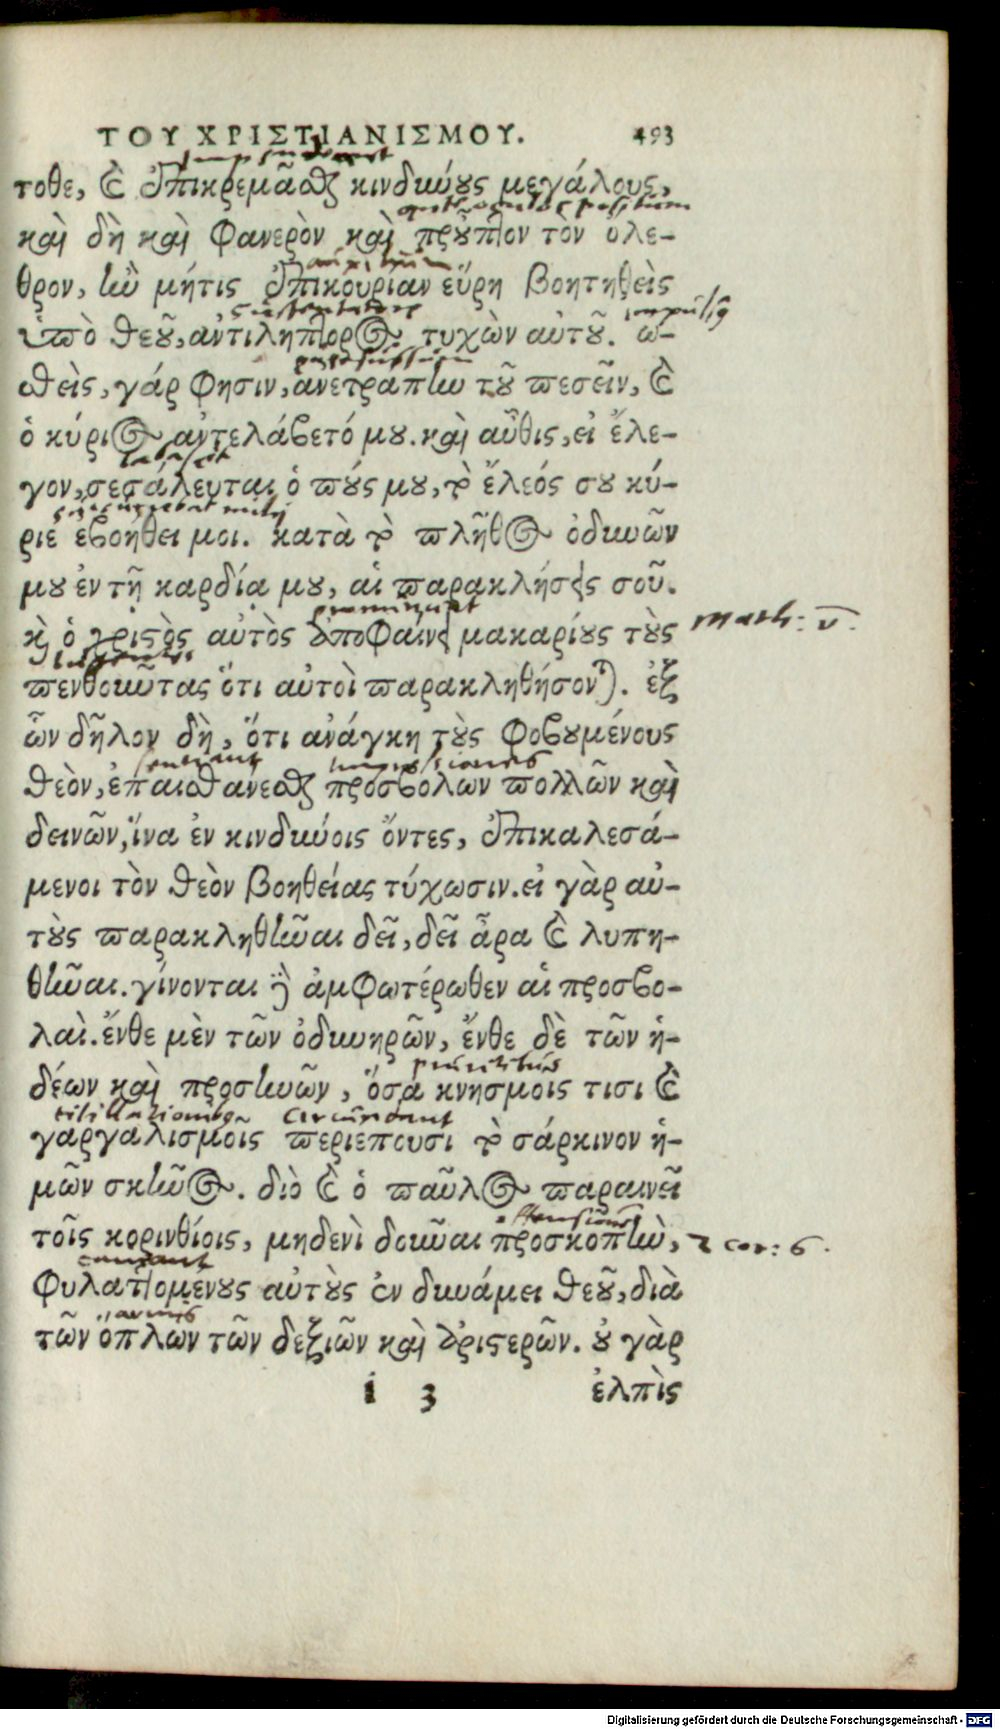 ΤΟΥ ΧΡΙΣΤΙΑΝΙΣΜΟΥ. 493
τοθε, καὶ ἐπικρεμᾶσθαι κινδύνους μεγάλους,
καὶ δὴ καὶ φανερὸν καὶ προὔπτον τὸν ολε-
θρον, ἢν μήτις ἐπικουρίαν εὕρῃ βοητηθεὶς
ὑπὸ θεοῦ, αντιλήπτορος τυχὼν αὐτοῦ. ω-
σθεὶς, γάρ φησιν, ανετραπην τοῦ πεσεῖν, καὶ
ὁ κύριος αντελάβετό μου. καὶ αὖθις, εἰ ἔλε-
γον, σεσάλευται ὁ ποῦς μου, τὸ ἔλεός σου κύ-
ριε ἐβοήθει μοι. κατὰ τὸ πλῆθος ὀδυνῶν
μου ἐν τῇ καρδία μου, αἱ παρακλήσεις σοῦ.
καὶ ὁ χριστὸς αὐτὸς ἀποφαίνει μακαρίους τοὺς
math: v.
πενθοῦντας ὅτι αὐτοὶ παρακληθήσονται. ἐξ
ὧν δῆλον δὴ, ὅτι ανάγκη τοὺς φοβουμένους
θεὸν, ἐπαισθανέσθαι προσβολων πολλῶν καὶ
δεινῶν, ἵνα ἐν κινδύνοις ὄντες, ἐπικαλεσά-
μενοι τὸν θεὸν βοηθείας τύχωσιν. εἰ γὰρ αὐ-
τοὺς παρακληθῆναι δεῖ, δεῖ ἆρα καὶ λυπη-
θῆναι. γίνονται δὲ ἀμφωτέρωθεν αἱ προσβο-
λαὶ. ἔνθε μὲν τῶν ὀδυνηρῶν, ἔνθε δὲ τῶν ἡ-
δέων καὶ προσηνῶν, ὅσα κνησμοις τισι καὶ
titillationibus circundant
γαργαλισμοῖς περιεπουσι τὸ σάρκινον ἡ-
μῶν σκῆνος. διὸ καὶ ὁ παῦλος παραινεῖ
τοῖς κορινθίοις, μηδενὶ δοῦναι προσκοπὴν,
2 cor: 6.
φυλαττομένους αὐτοὺς ἐν δυνάμει θεοῦ, διὰ
armis
τῶν ὅπλων τῶν δεξιῶν καὶ ἀριστερῶν. οὐ γὰρ
i 3 ἐλπὶς
Digitalisierung gefördert durch die Deutsche Forschungsgemeinschaft - DFG